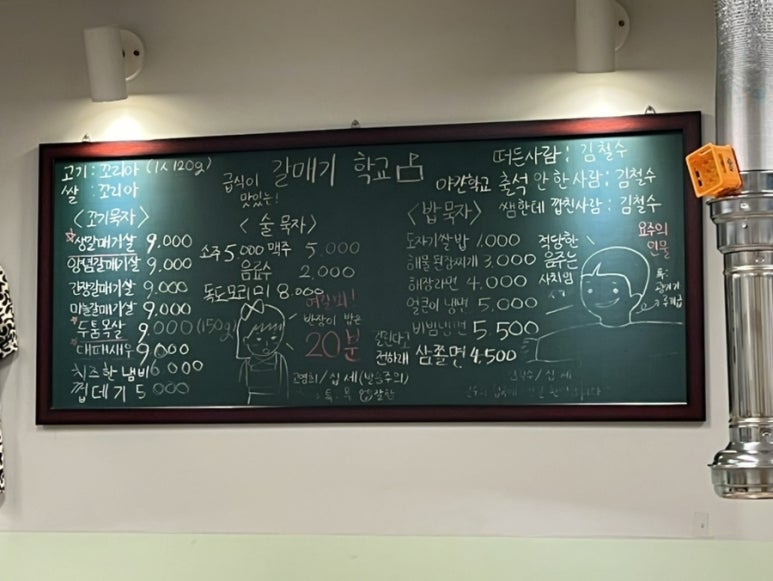 고기 : 꼬리아 (1人 120g)
쌀 : 꼬리아
<꼬기묵자>
생갈매기살 9,000
양념갈매기살 9,000
간장갈매기살 9,000
마늘갈매기살 9,000
두툼목살 9,000 (150g)
대패새우 9,000
치즈한냄비 6,000
껍데기 5,000
급식이 맛있는!
갈매기 학교
<술 묵자>
소주 5,000 맥주 5,000
음료수 2,000
독도모리미 8,000
반장이 밥은
20분
십 세 (발음주의)
떠든사람 : 김철수
야간학교 출석 안 한 사람 : 김철수
쌤한테 깝친사람 : 김철수
<밥묵자>
도자기쌀밥 1,000
해물된장찌개 3,000
해장라면 4,000
얼큰이 냉면 5,000
비빔냉면 5,500
전하래 삼쫄면 4,500
적당한
음주는
요주의
인물
특: